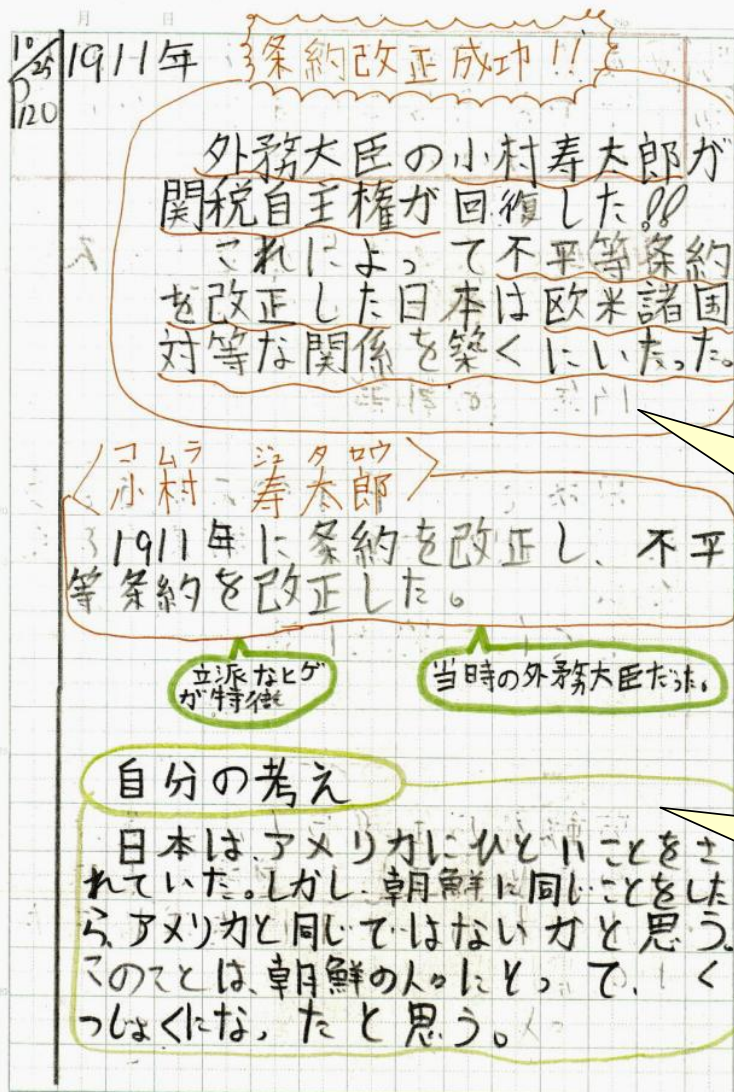 月 日
10/25
P120
1911年 条約改正成功!!
外務大臣の小村寿太郎が
関税自主権が回復した!!
これによって不平等条約
を改正した日本は欧米諸国
対等な関係を築くにいたった。
コムラ ジュタロウ
〈小村 寿太郎〉
1911年に条約を改正し、不平
等条約を改正した。
立派なヒゲ
が特徴
当時の外務大臣だった。
自分の考え
日本は、アメリカにひどいことをさ
れていた。しかし、朝鮮に同じことをした
ら、アメリカと同じではないかと思う。
このことは、朝鮮の人々にとって、く
つじょくになったと思う。